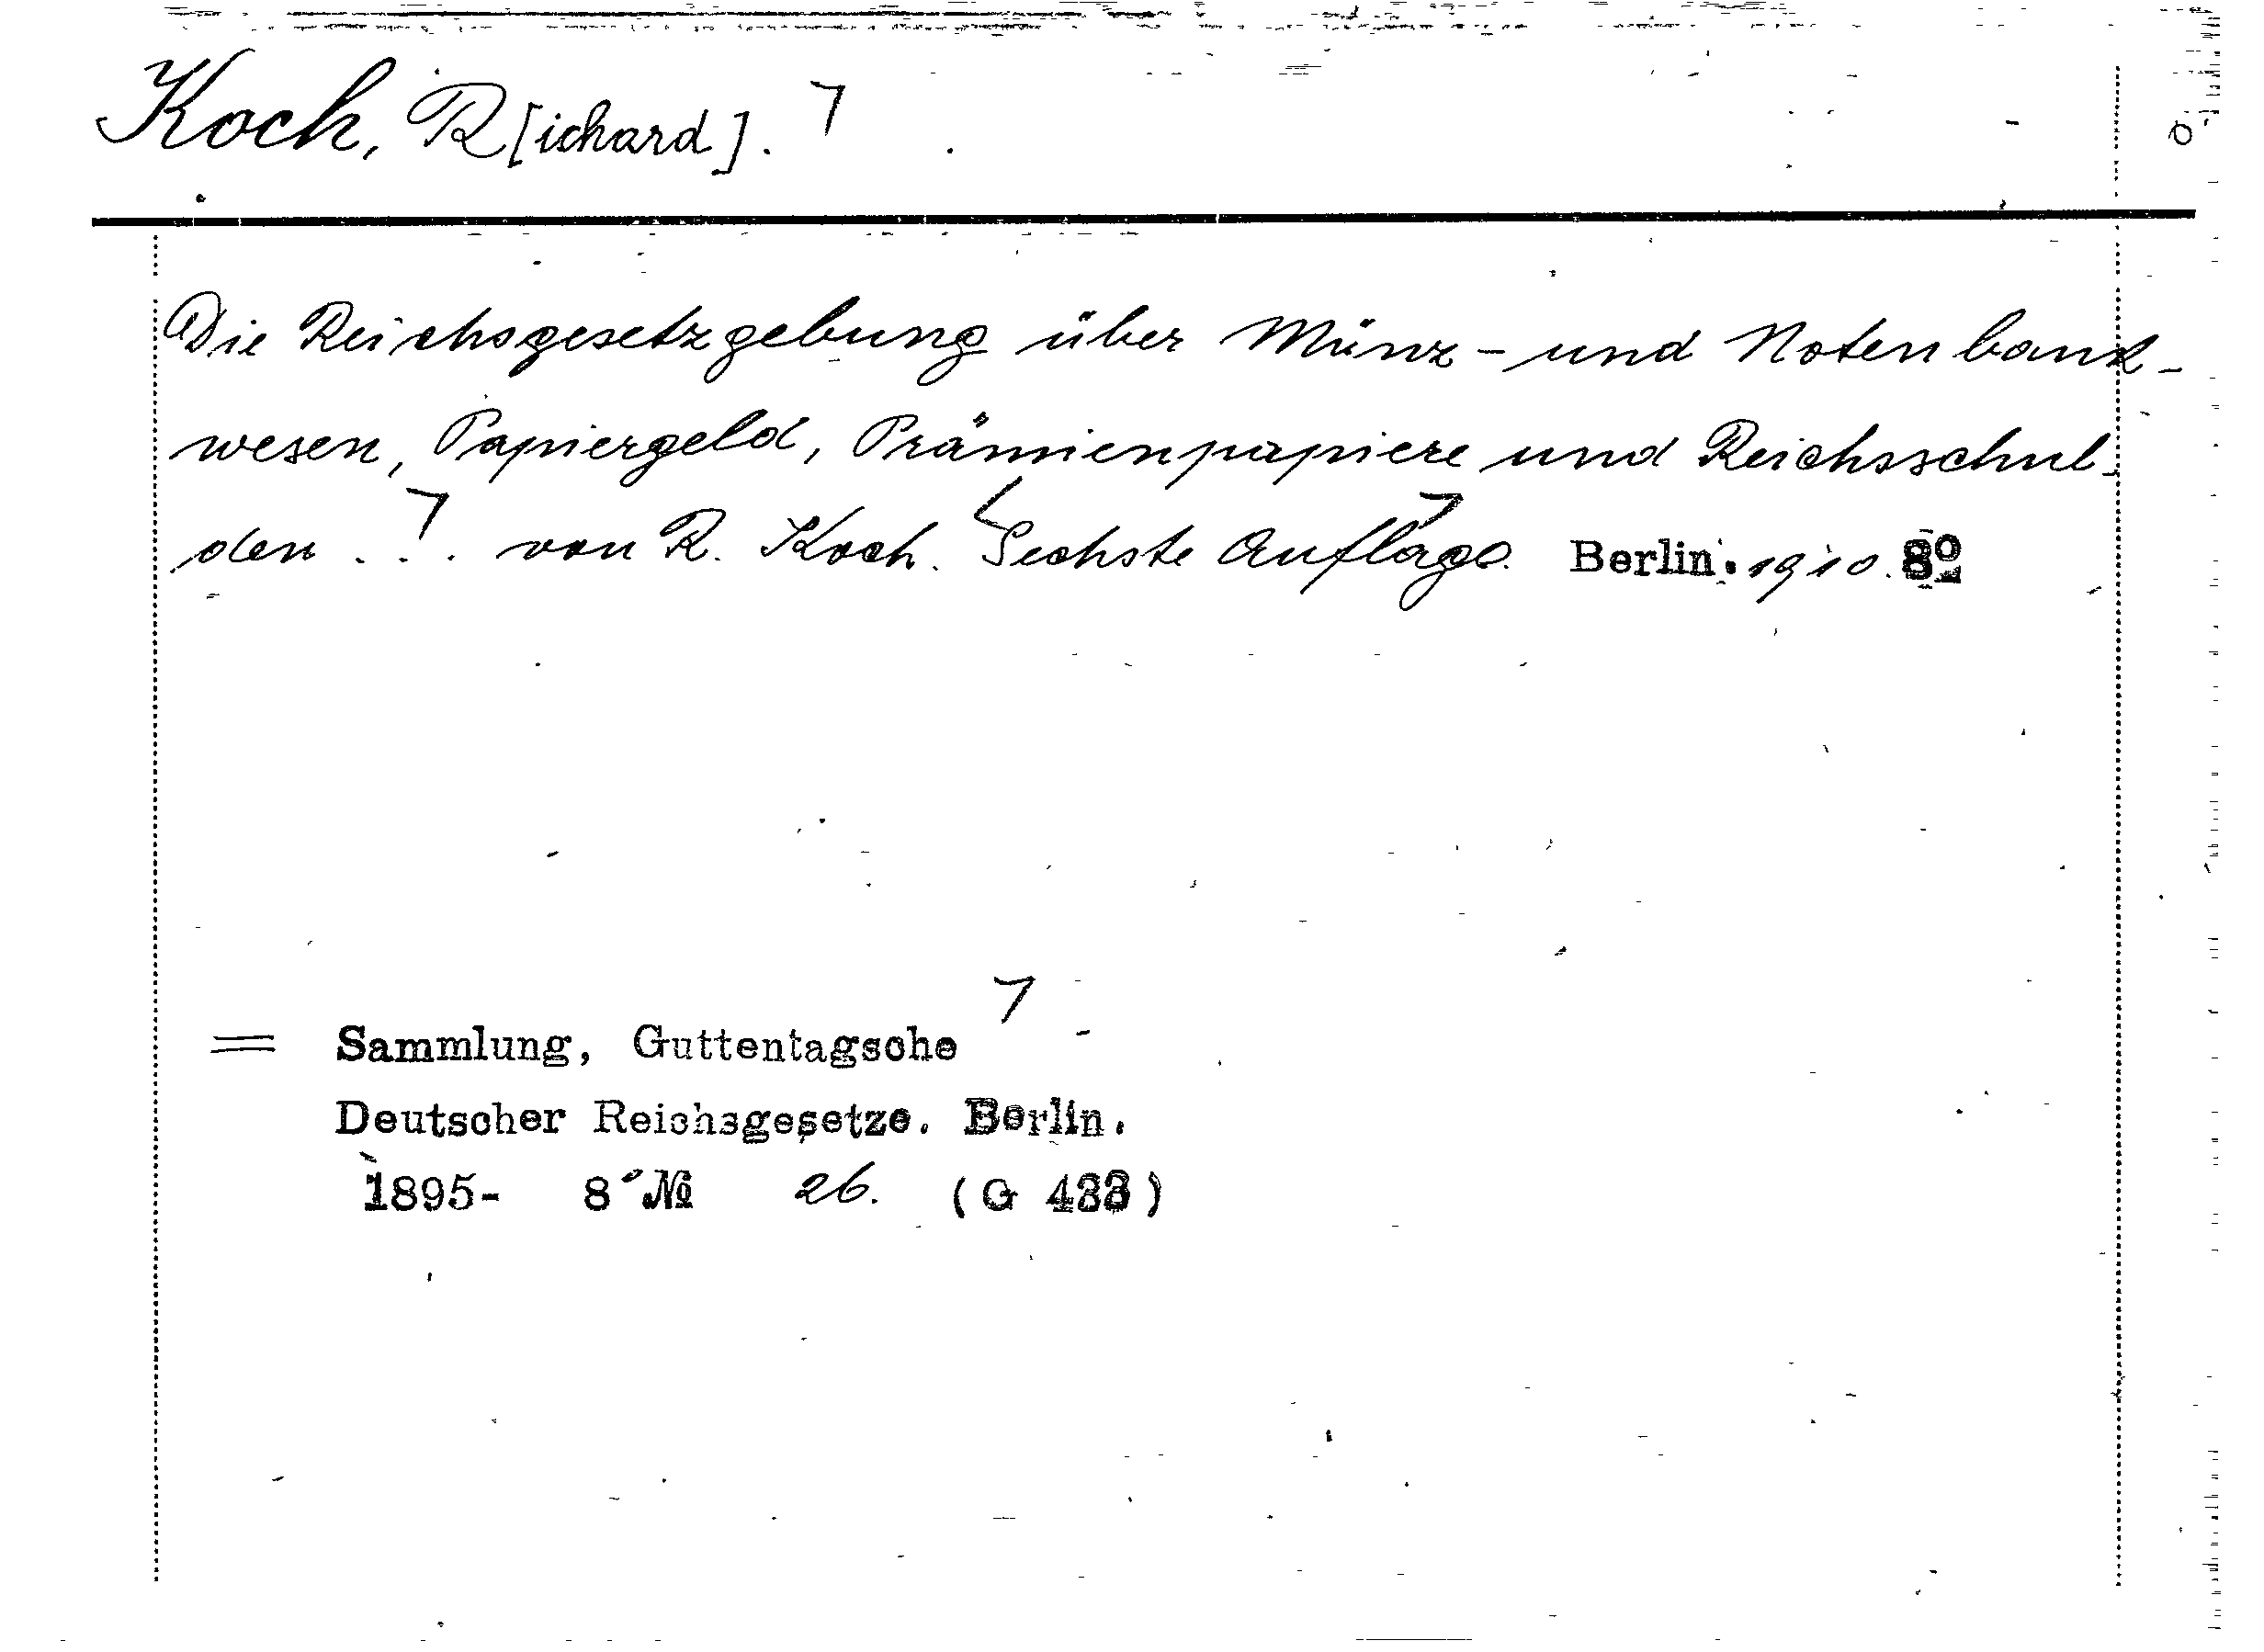 Koch, R[ichard].
Die Reichsgesetzgebung über Münz- und Notenbank-
wesen, Papiergeld, Prämienpapiere und Reichsschul-
den ... von R. Koch. Sechste Auflage. Berlin. 1910. 8º
= Sammlung, Guttentagsche
Deutscher Reichsgesetze. Berlin.
1895- 8º № 26. (G 433)